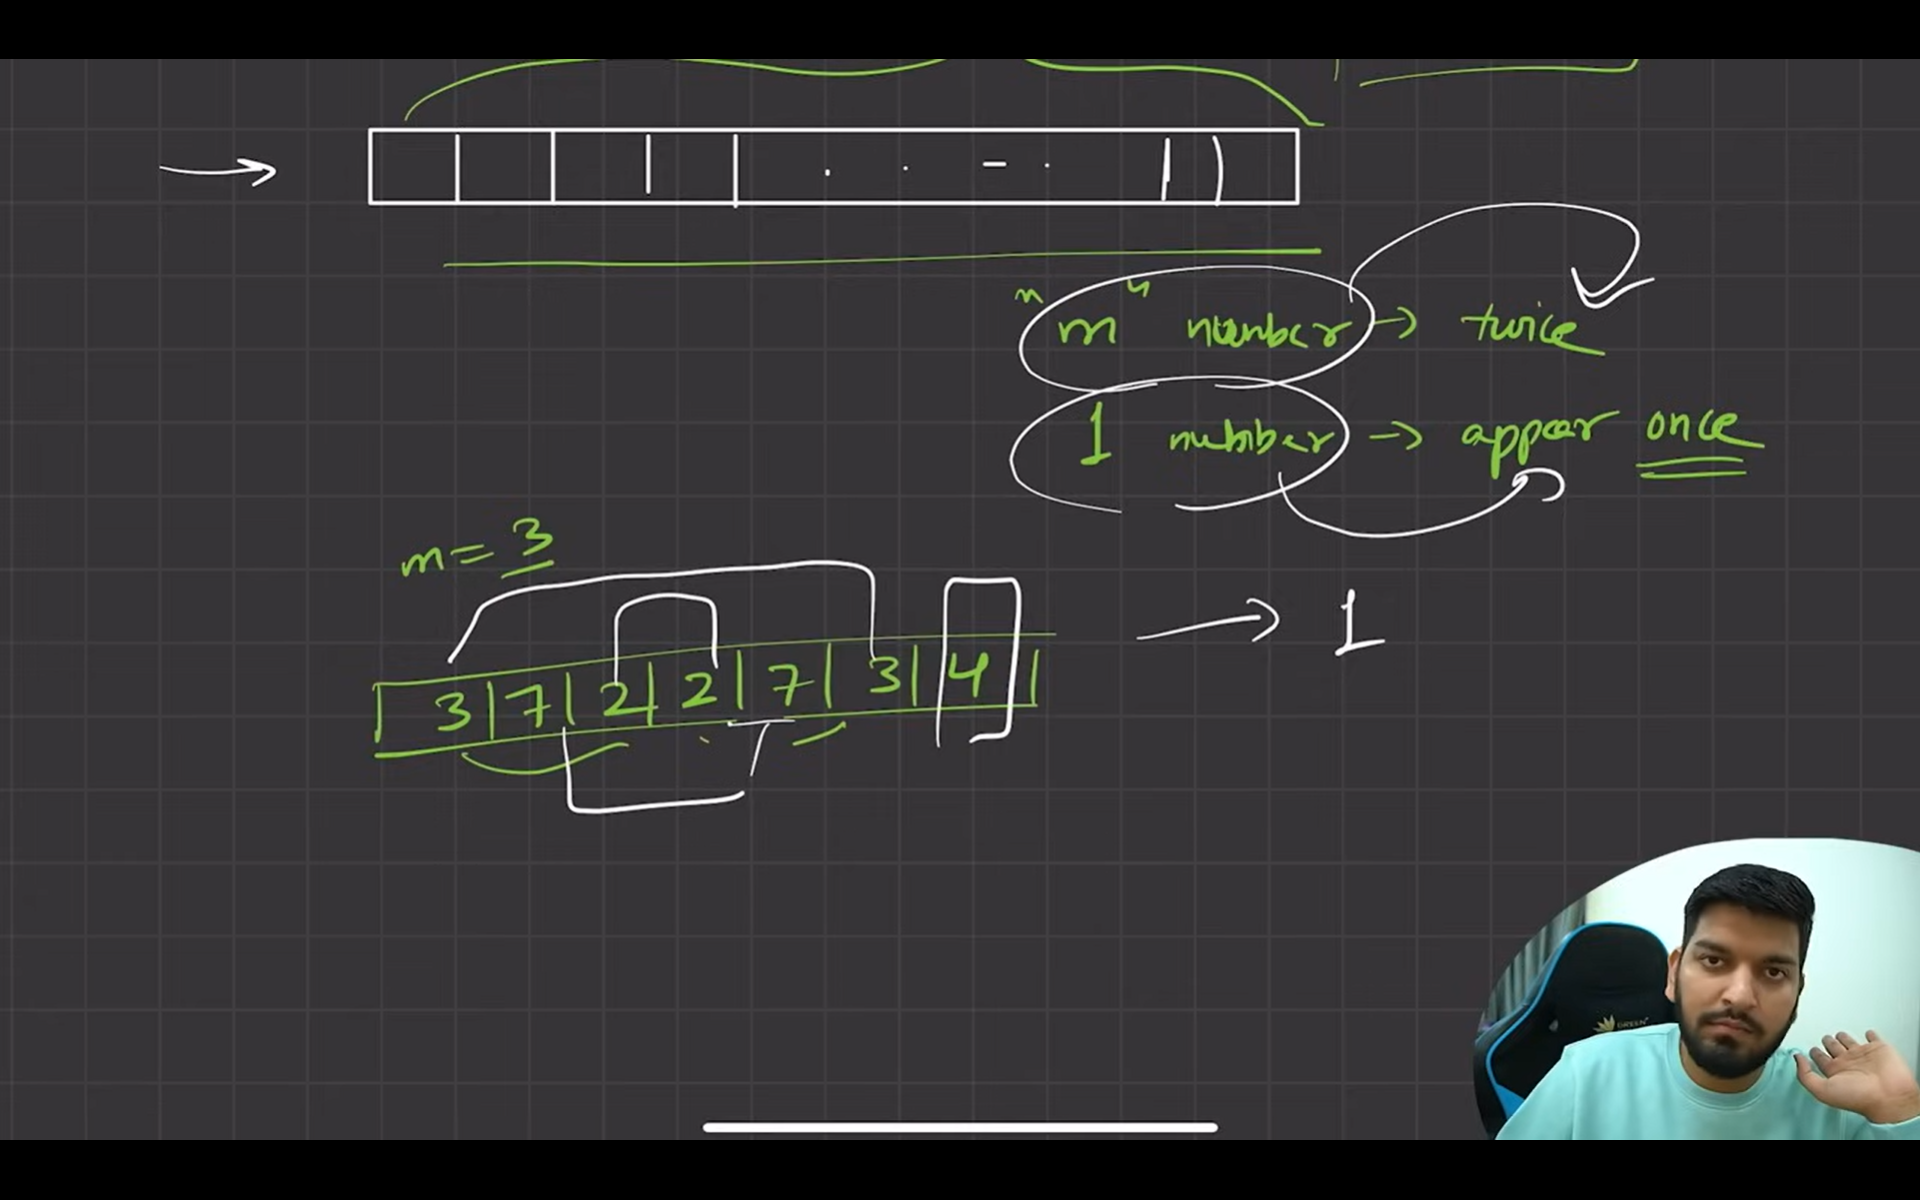 "m" number → twice
1 number → appear once
m = 3
→ 1
3|7|2|2|7|3|4|
GREEN